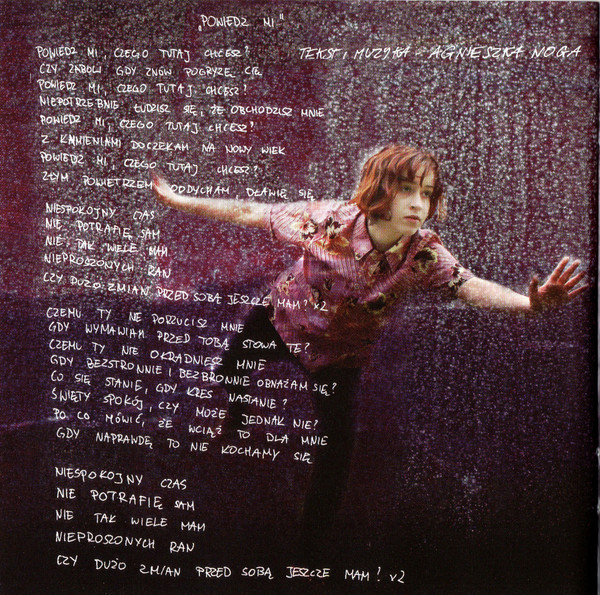 „POWIEDZ MI"
TEKST I MUZYKA - AGNIESZKA NOGA
POWIEDZ MI, CZEGO TUTAJ CHCESZ?
CZY ZABOLI GDY ZNÓW POGRYZĘ CIĘ
POWIEDZ MI, CZEGO TUTAJ CHCESZ?
NIEPOTRZEBNIE ŁUDZISZ SIĘ, ŻE OBCHODZISZ MNIE
POWIEDZ MI, CZEGO TUTAJ CHCESZ?
Z KAMIENIAMI DOCZEKAM NA NOWY WIEK
POWIEDZ MI, CZEGO TUTAJ CHCESZ?
ZŁYM POWIETRZEM ODDYCHAM, DŁAWIĘ SIĘ
NIESPOKOJNY CZAS
NIE POTRAFIĘ SAM
NIE TAK WIELE MAM
NIEPROSZONYCH RAN
CZY DUŻO ZMIAN PRZED SOBĄ JESZCZE MAM? x2
CZEMU TY NE PORZUCISZ MNIE
GDY WYMAWIAM PRZED TOBĄ SŁOWA TE?
CZEMU TY NIE OKRADNIESZ MNIE
GDY BEZSTRONNIE I BEZBRONNIE OBNAŻAM SIĘ?
CO SIĘ STANIE, GDY KRES NASTANIE?
ŚWIĘTY SPOKÓJ, CZY MOŻE JEDNAK NIE?
PO CO MÓWIĆ, ŻE WCIĄŻ TO DLA MNIE
GDY NAPRAWDĘ TO NIE KOCHAMY SIĘ
NIESPOKOJNY CZAS
NIE POTRAFIĘ SAM
NIE TAK WIELE MAM
NIEPROSZONYCH RAN
CZY DUŻO ZMIAN PRZED SOBĄ JESZCZE MAM? x2